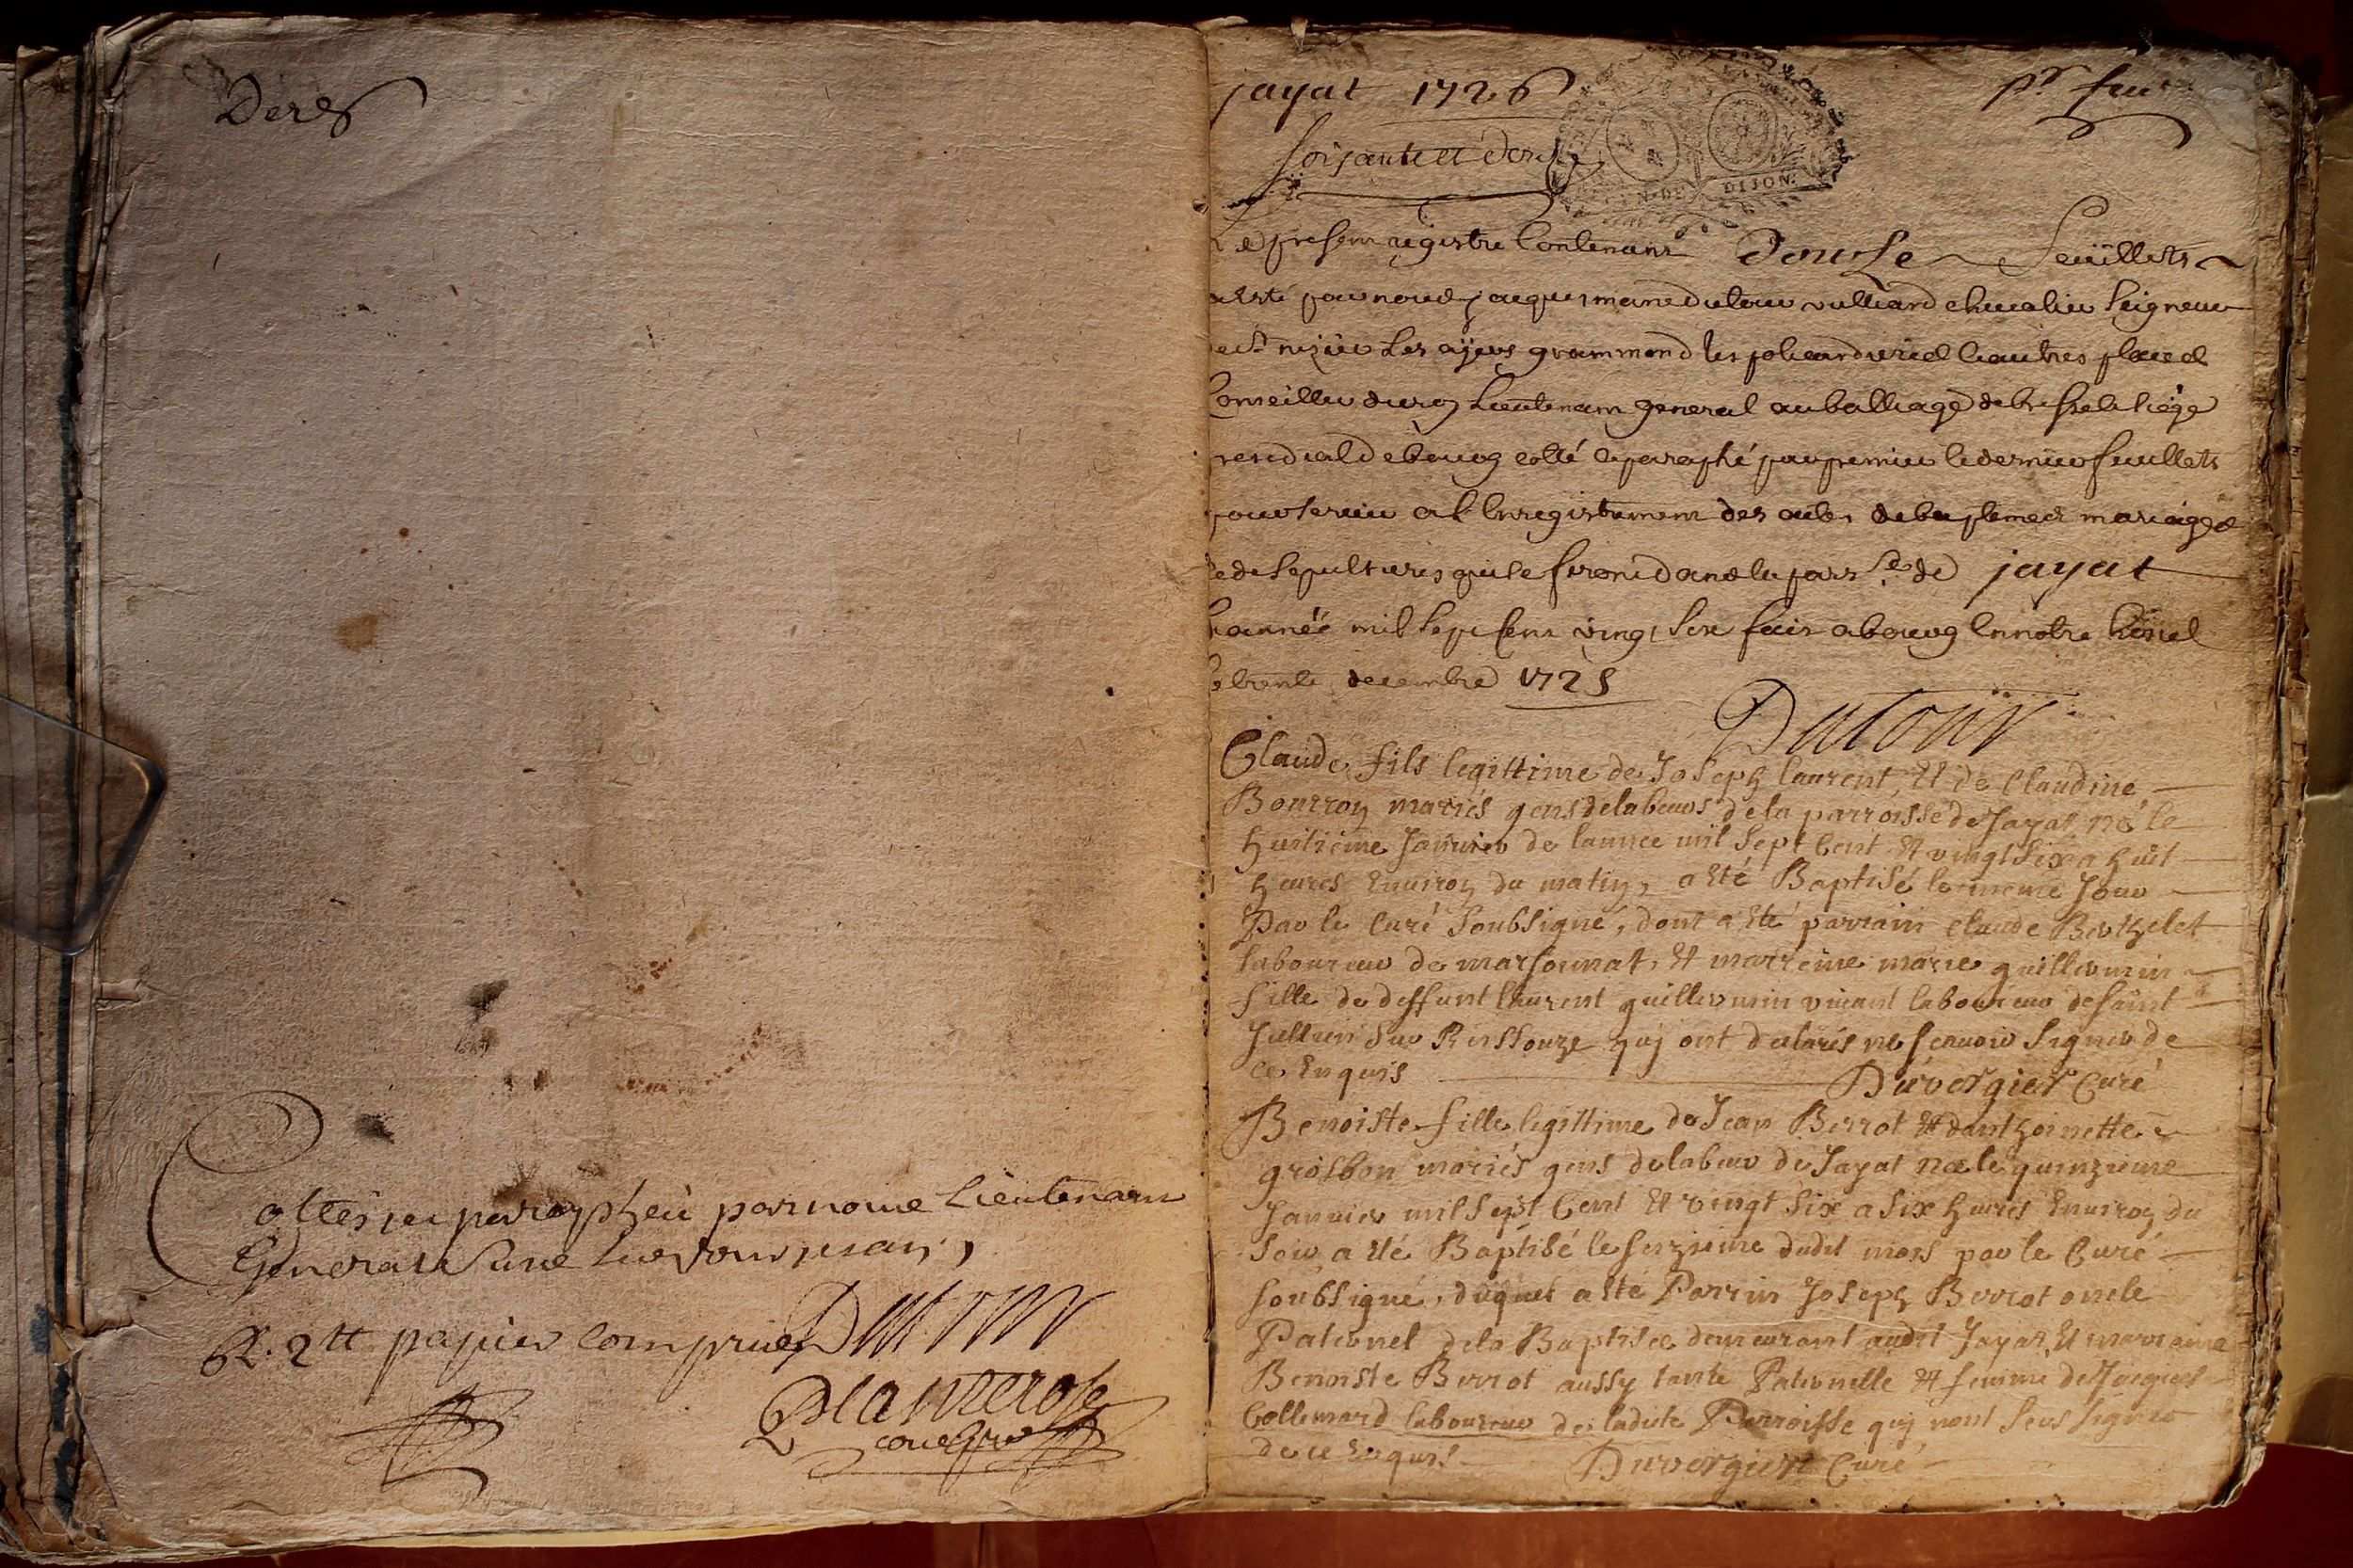 Der
Cottés et parapheé par nous Lieutenant
General
R. 2tt papier compris Dutour
jayat 1726 pr feu
soixante et douse
DIJON.
Le present registre contenant Douse feüillets
a esté par nous jacques marie dutour vulliard chevalier seigneur
de st nizier les grammond les et autres places
Conseiller du roy Lieutenant general au balliage de bresse et siege
presidial de bourg cotté et paraphé par premier et dernier feuillets
pour servir a l'enregistrement des actes de baptemes mariages
et de sepultures qui se feront dans la parrse de jayat
Lannée mil sept cent vingt six fait a bourg en notre hostel
le trente decembre 1725
Dutour
Claude fils legittime de Joseph laurent, Et de Claudine
Bourron mariés gens de labeurs de la parroisse de Jayat né le
huitième Janvier de lannee mil sept Cent Et vingt six a huit
heures Environ du matin, a Eté Baptisé le meme Jour
Par le Curé Soubsigné, dont a Eté parrain Claude Berthelet
laboureur de marsonnat, Et marreine marie guillermin
fille de deffunt laurent guillermin vivant laboureur de saint
Jullien sur Ressouze quj ont declarés ne scavoir signer de
ce Enquis Duvergier Curé
Benoiste fille legittime de Jean Berrot Et danthoinette
grosbon mariés gens de labeur de Jayat neé le quinzieme
Janvier mil sept Cent Et vingt six a six heures Environ du
soir, a Eté Baptisé le seizieme dudit mois par le Curé
soubsigné, duquel a Eté Parrin Joseph Berrot oncle
Paternel de la Baptisée demeurant audit Jayat, Et marraine
Benoiste Berrot aussy tante Paternelle Et femme de Jacques
Collemard laboureur de ladite Parroisse quj nont sceu signer
de ce Enquis Duvergier Curé